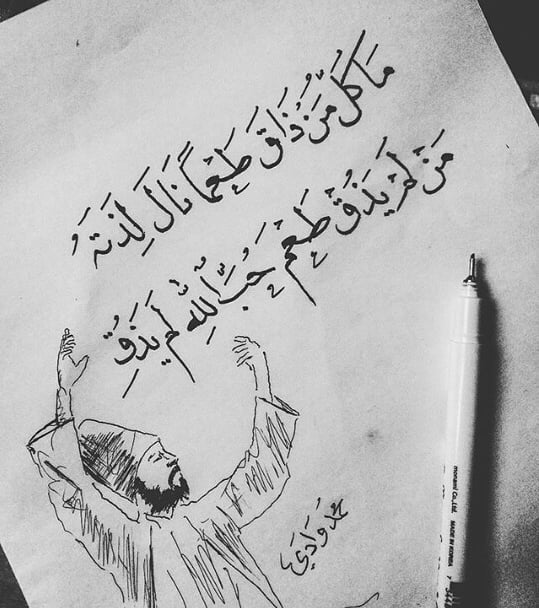 مَا كُلُّ مَنْ ذَاقَ طَعْماً نَالَ لِذَتَهُ
مَنْ لَمْ يَذُقْ طَعْمَ حُبَّ اللَّهِ لَمْ يَذُقِ
محمد وادي
monami Co.,Ltd.
MADE IN KOREA